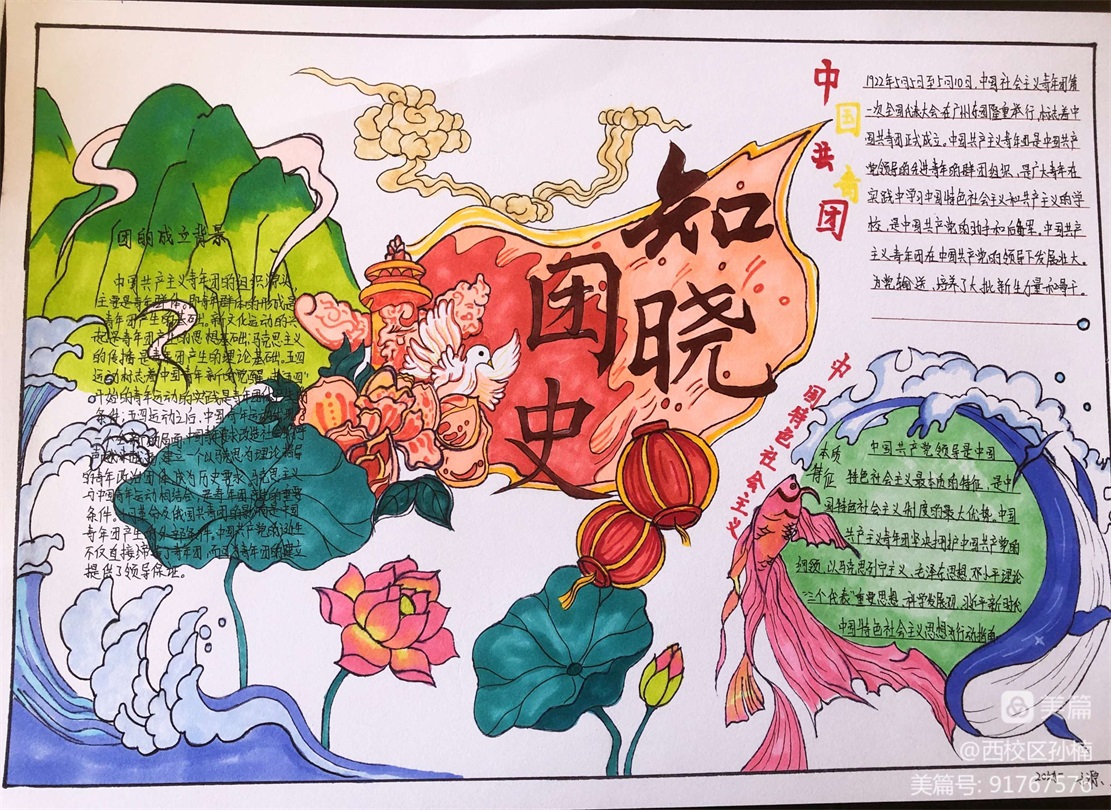 知晓
团史
中国共青团
1922年5月5日至5月10日，中国社会主义青年团第
一次全国代表大会在广州东园隆重举行，标志着中
国共青团正式成立。中国共产主义青年团是中国共产
党领导的先进青年的群团组织，是广大青年在
实践中学习中国特色社会主义和共产主义的学
校，是中国共产党的助手和后备军。中国共产
主义青年团在中国共产党的领导下发展壮大。
为党输送、培养了大批新生力量和骨干。
团的成立背景
中国共产主义青年团的组织源头，
主要是青年群体。即青年群体的形成是
青年团产生的基础。新文化运动的兴
起是青年团产生的思想基础；马克思主义
的传播是青年团产生的理论基础。五四
运动标志着中国青年新的觉醒，
的青年运动的实践是青年团
条件；五四运动之后，中国青年运动
建立一个以马克思为理论指导
的青年政治团体成为历史要求。马克思主义
与中国青年运动相结合，是青年团创建的重要
条件。十月革命及俄国共青团的影响是中国
青年团产生的外部条件。中国共产党的诞生
不仅直接缔造了青年团，而且为青年团的建立
提供了领导保证。
中国特色社会主义
本质
特征
中国共产党领导是中国
特色社会主义最本质的特征，是中
国特色社会主义制度的最大优势。中国
共产主义青年团坚决拥护中国共产党的
纲领，以马克思列宁主义、毛泽东思想、邓小平理论
“三个代表”重要思想、科学发展观、习近平新时代
中国特色社会主义思想为行动指南
美篇
@西校区孙楠
美篇号: 91767576